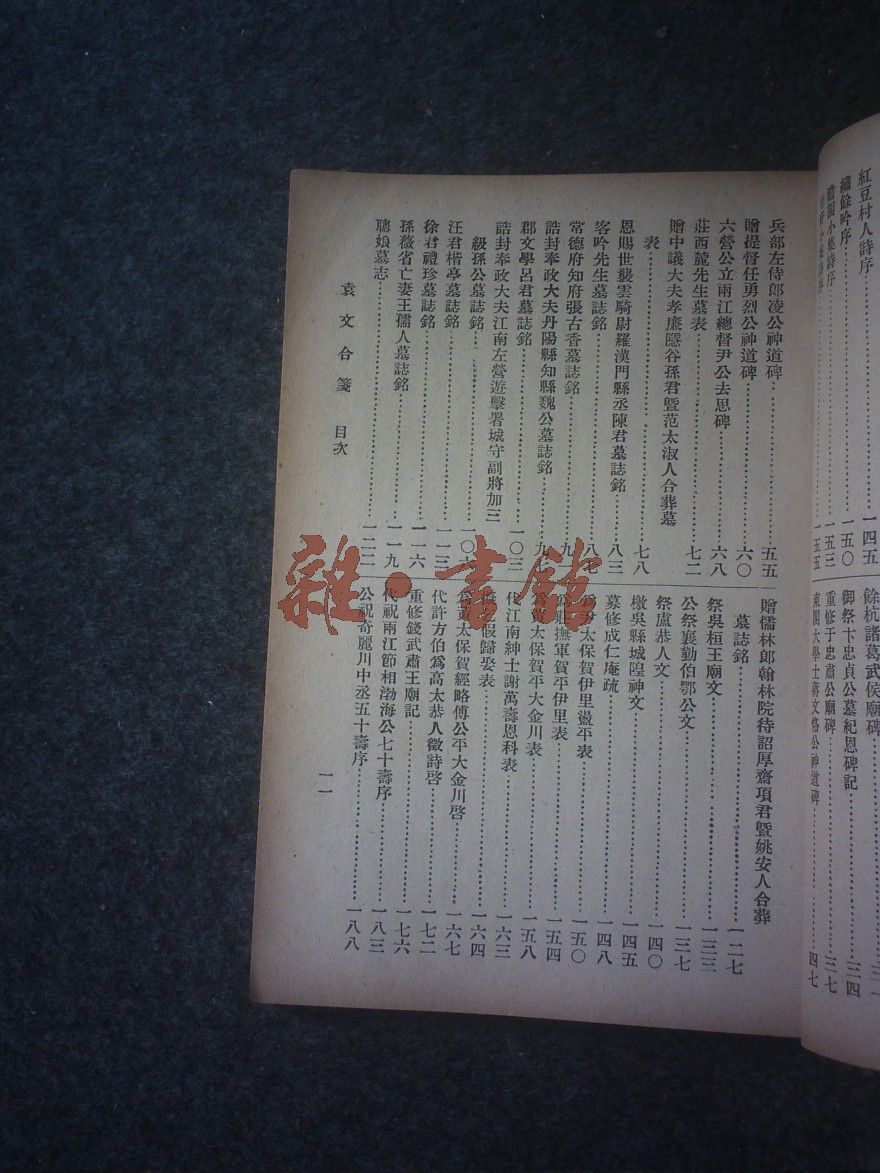 紅豆村人詩序……一四五
繡餘吟序……一五〇
詩序……一五三
一五五
餘杭諸葛武侯廟碑
御祭卞忠貞公墓紀恩碑記……三四
重修于忠肅公廟碑……三七
東閣大學士蔣文恪公神道碑……四七
兵部左侍郎凌公神道碑……五五
贈提督任勇烈公神道碑……六〇
六營公立兩江總督尹公去思碑……六八
莊西麓先生墓表……七二
贈中議大夫孝廉隱谷孫君暨范太淑人合葬墓
表……七八
恩賜世襲雲騎尉羅漢門縣丞陳君墓誌銘……八三
客吟先生墓誌銘……八七
常德府知府張古香墓誌銘……九
誥封奉政大夫丹陽縣知縣魏公墓誌銘……九
郡文學呂君墓誌銘……一〇三
誥封奉政大夫江南左營遊擊署城守副將加三
級孫公墓誌銘……一〇
汪君楷亭墓誌銘……一一三
徐君禮珍墓誌銘……一一六
孫薇省亡妻王孺人墓誌銘……一一九
聰娘墓志……一二二
贈儒林郎翰林院待詔厚齋項君暨姚安人合葬
墓誌銘……一二七
祭吳桓王廟文……一三三
公祭襄勤伯鄂公文……一三七
祭盧恭人文……一四〇
檄吳縣城隍神文……一四五
募修成仁庵疏……一四八
尹太保賀伊里盪平表……一五〇
撫軍賀平伊里表……一五四
賀太保賀平大金川表……一五八
代江南紳士謝萬壽恩科表……一六三
假歸娶表……一六四
黃太保賀經略傅公平大金川啓……一六七
代許方伯爲高太恭人徵詩啓……一七二
重修錢武肅王廟記……一七六
代祝兩江節相渤海公七十壽序……一八三
公祝奇麗川中丞五十壽序……一八八
袁文合箋 目次
一一
雜·書館